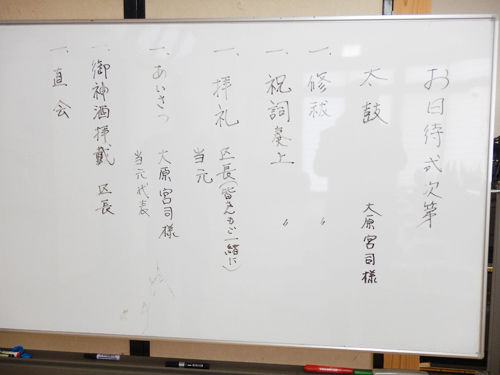 お日待式次第
太鼓 大原宮司様
一、修祓 〃
一、祝詞奏上 〃
一、拝礼 区長(皆さんもご一緒に)
当元
一、あいさつ 大原宮司様
当元代表
一、御神酒拝戴 区長
一、直会